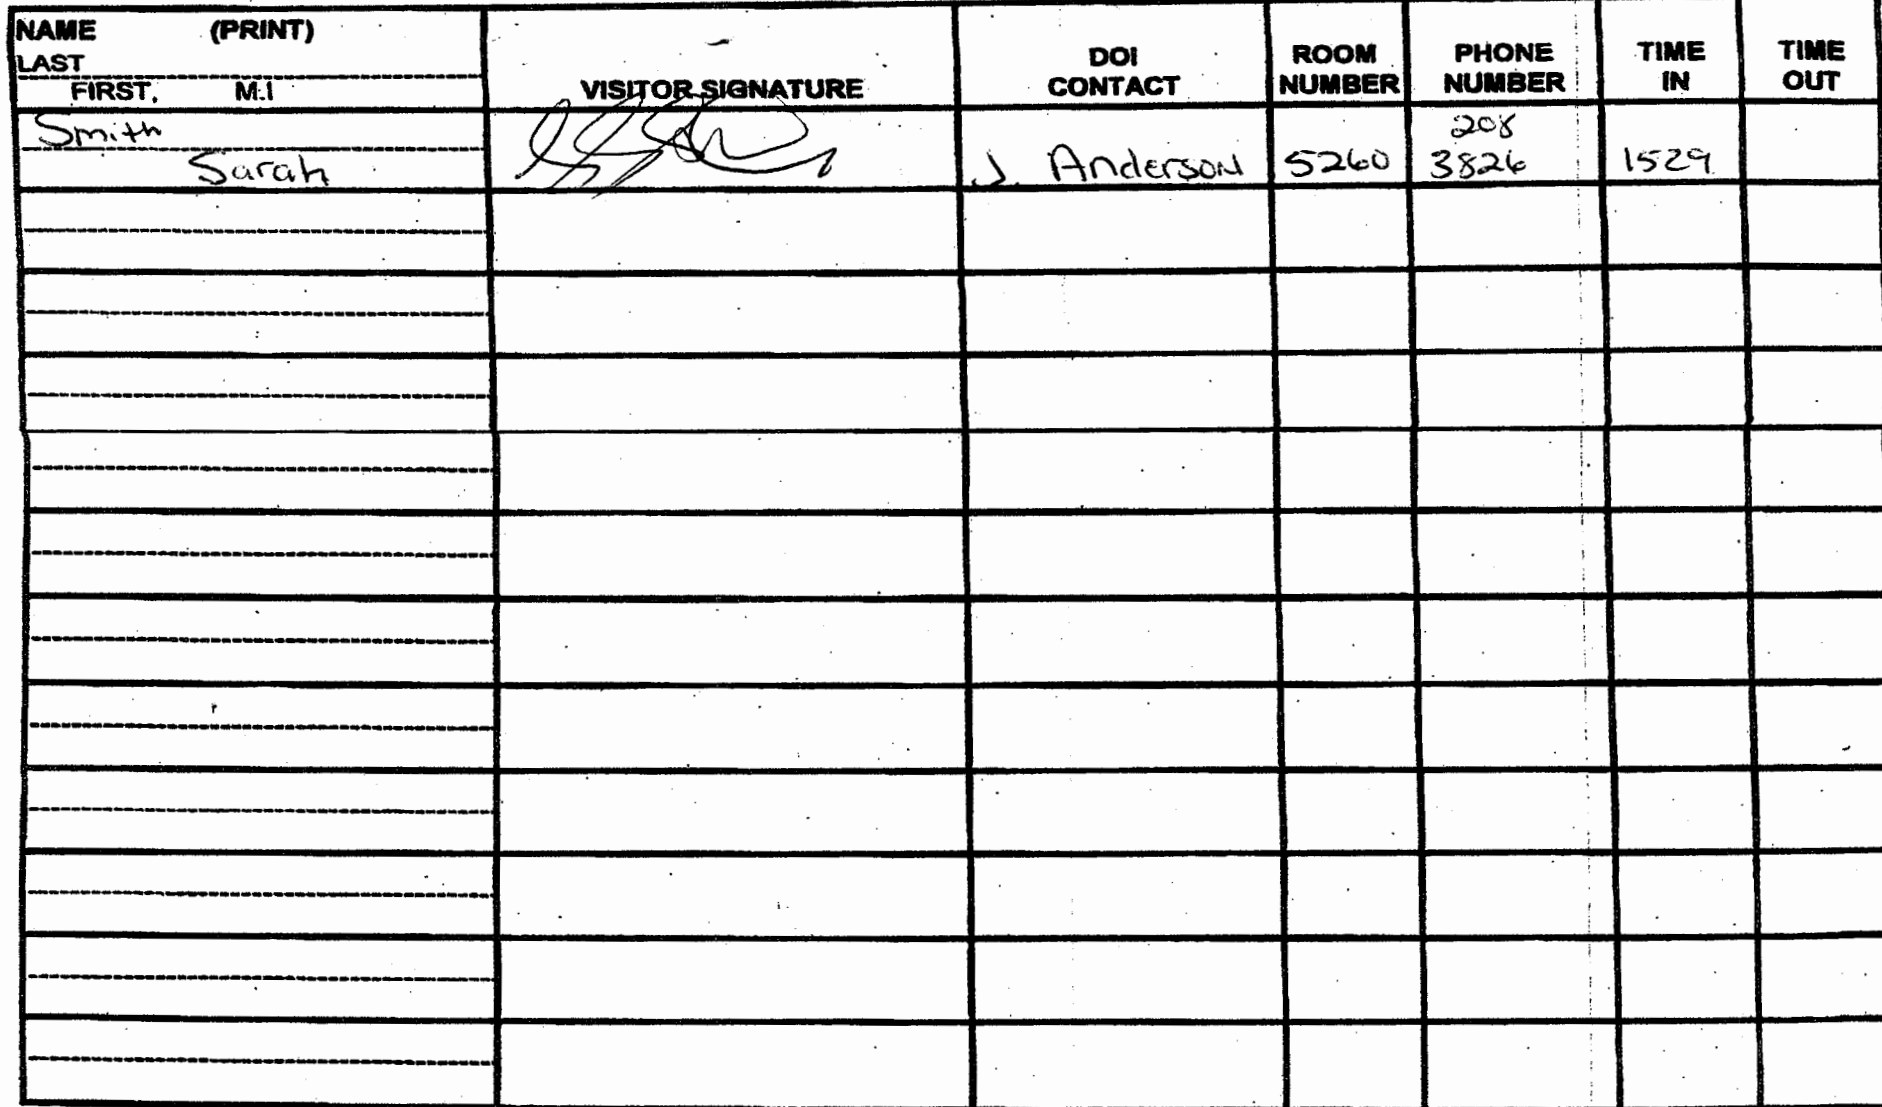 NAME (PRINT)
LAST
FIRST, M.I
VISITOR SIGNATURE
DOI
CONTACT
ROOM
NUMBER
PHONE
NUMBER
TIME
IN
TIME
OUT
Smith
Sarah
J. Anderson
5260
208
3826
1529